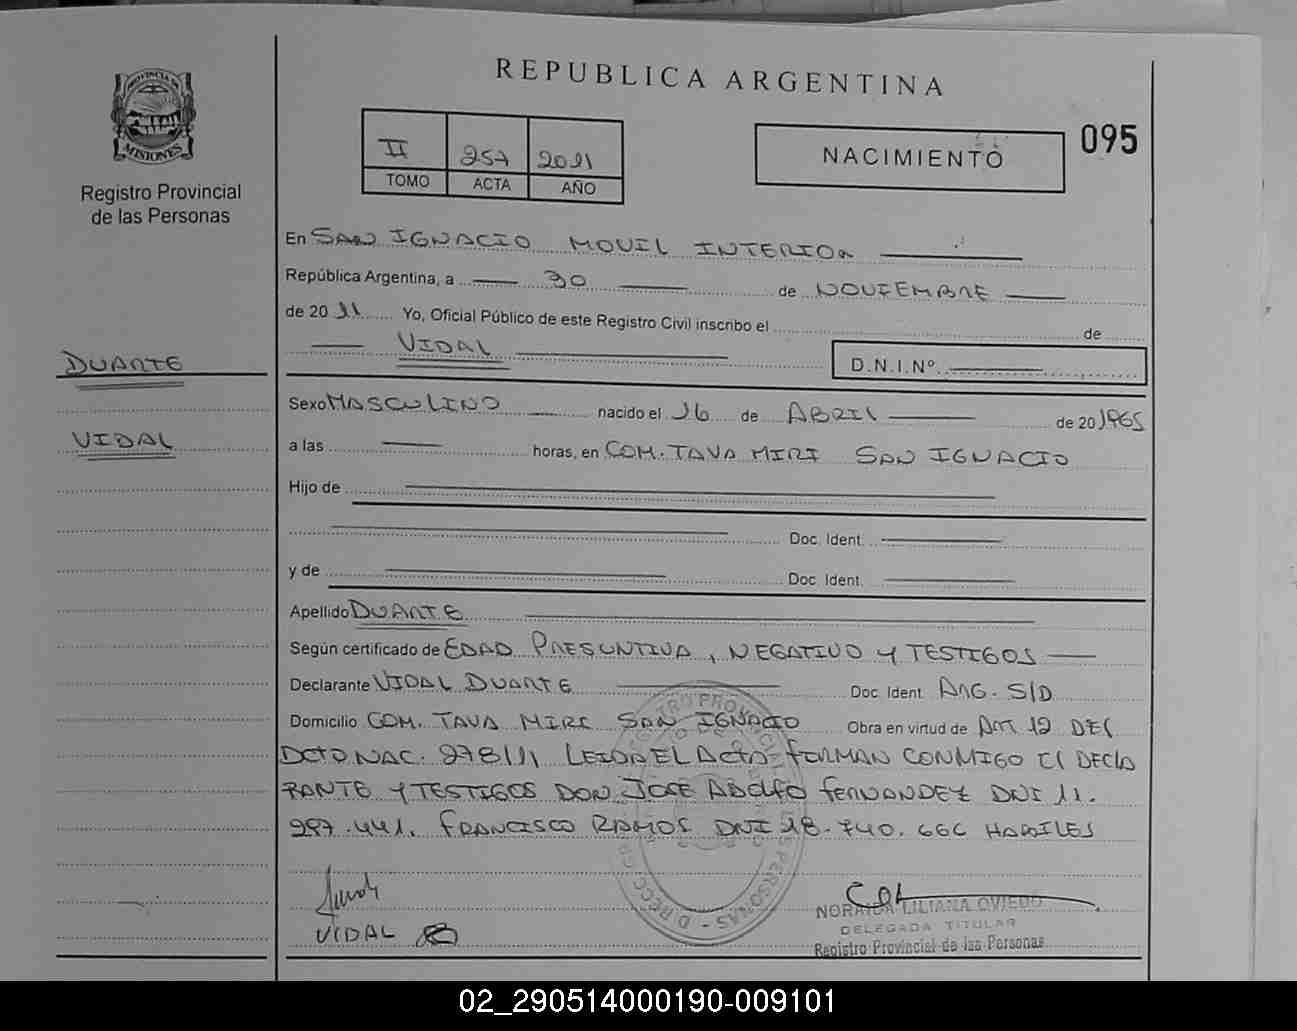 REPUBLICA ARGENTINA
PROVINCIA DE
MISIONES
Registro Provincial
de las Personas
II 257 2011
TOMO ACTA AÑO
NACIMIENTO
095
En SAN IGNACIO MOVIL INTERIOR
República Argentina, a 30 de NOVIEMBRE
de 2011 Yo, Oficial Público de este Registro Civil inscribo el de
VIDAL D.N.I.Nº
DUARTE
VIDAL
Sexo MASCULINO nacido el 16 de ABRIL de 20 1965
a las horas, en COM. TAVA MIRI SAN IGNACIO
Hijo de
Doc. Ident.
y de Doc. Ident.
Apellido DUARTE
Según certificado de EDAD PRESUNTIVA, NEGATIVO Y TESTIGOS
Declarante VIDAL DUARTE Doc. Ident ARG. S/D
Domicilio COM. TAVA MIRI SAN IGNACIO Obra en virtud de ART 12 DEL
DCTO NAC. 278/11 LEIDA EL ACTA FIRMAN CONMIGO EL DECLA
RANTE Y TESTIGOS DON JOSE ADOLFO FERNANDEZ DNI 11.
297.441. FRANCISCO RAMOS DNI 18.740.666 HABILES
VIDAL
NORAIDA LILIANA OVIEDO
DELEGADA TITULAR
Registro Provincial de las Personas
02_290514000190-009101